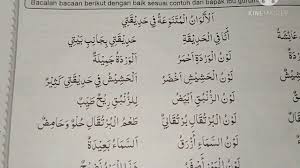 Bacalah bacaan berikut dengan baik sesuai contoh dari bapak ibu
KINEMASTER
اَلْأَلْوَانُ الْمُتَنَوِّعَةُ فِي حَدِيْقَتِي
أَنَا فِي الْحَدِيْقَةِ حَدِيْقَتِي بِجَانِبِ بَيْتِي
لَوْنُ الْوَرْدَةِ أَحْمَرُ الْوَرْدَةُ جَمِيْلَةٌ
لَوْنُ الْحَشِيْشِ أَخْضَرُ الْحَشِيْشُ فِي حَدِيْقَتِي كَثِيْرٌ
لَوْنُ الزُّنْبُقِ أَبْيَضُ لِلزُّنْبُقِ رِيْحٌ طَيِّبٌ
لَوْنُ الْبُرْتُقَالِ بُرْتُقَالِيٌّ طَعْمُ الْبُرْتُقَالِ حُلْوٌ وَحَامِضٌ
لَوْنُ السَّمَاءِ أَزْرَقُ اَلسَّمَاءُ بَعِيْدَةٌ